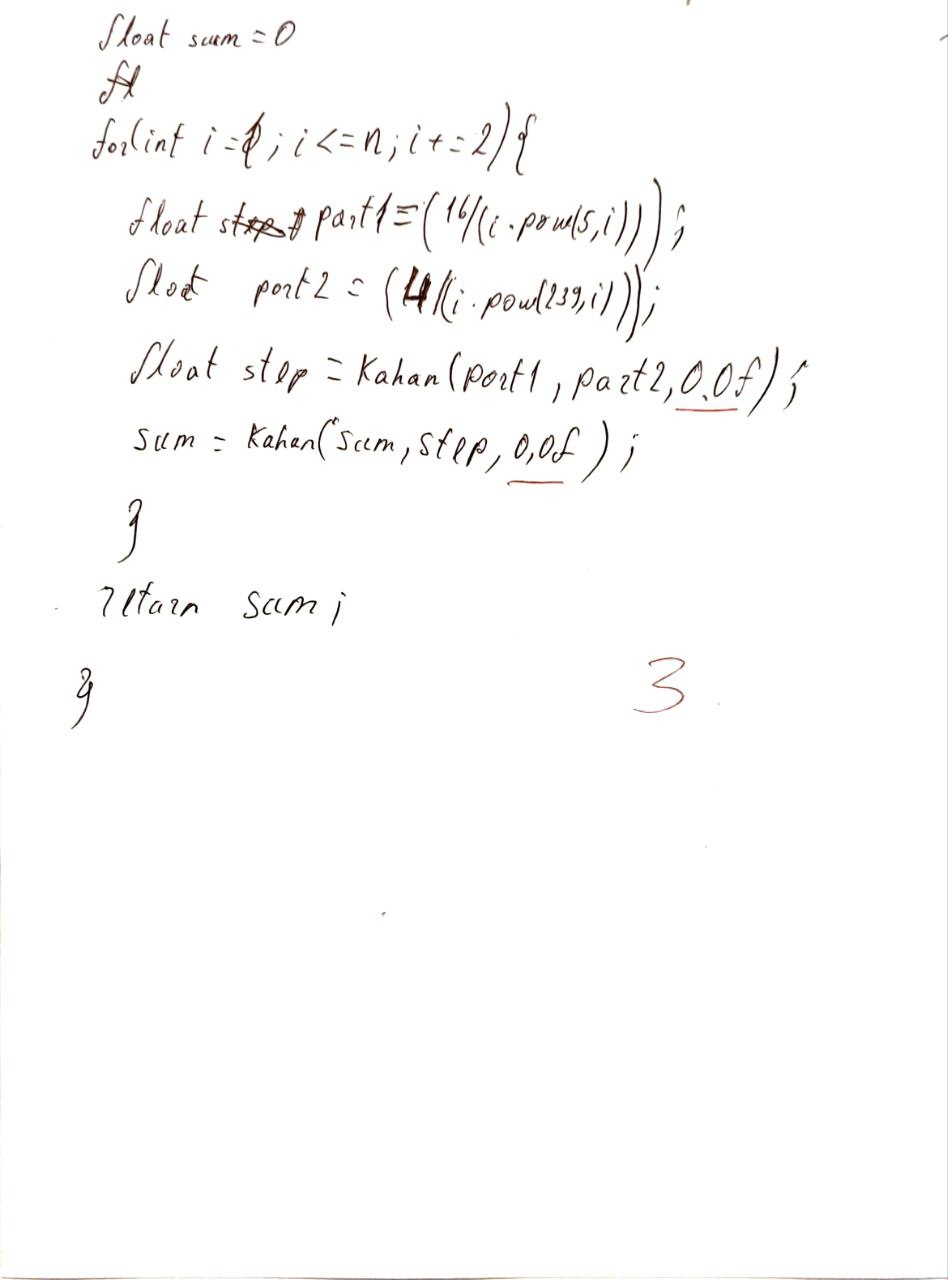 float sum = 0
fl
for(int i = 1; i <= n; i += 2){
float part1 = (16/(i·pow(5,i)));
float part2 = (4/(i·pow(239,i)));
float step = Kahan(part1, part2, 0.0f);
sum = Kahan(sum, step, 0,0f);
}
return sum;
}
3